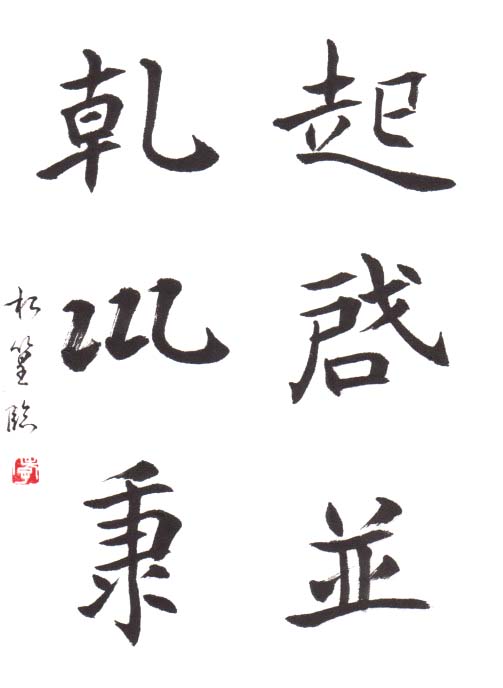 起啓並
乾巛秉
松篁臨